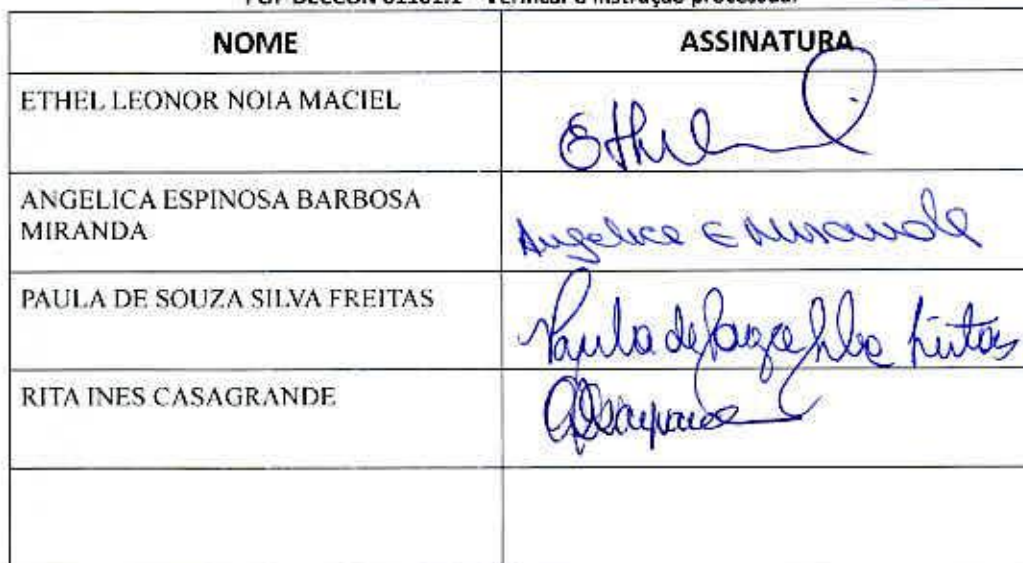 NOME ASSINATURA
ETHEL LEONOR NOIA MACIEL
Ethel
ANGELICA ESPINOSA BARBOSA
MIRANDA
Angelica E Miranda
PAULA DE SOUZA SILVA FREITAS
Paula de Souza Silva Freitas
RITA INES CASAGRANDE